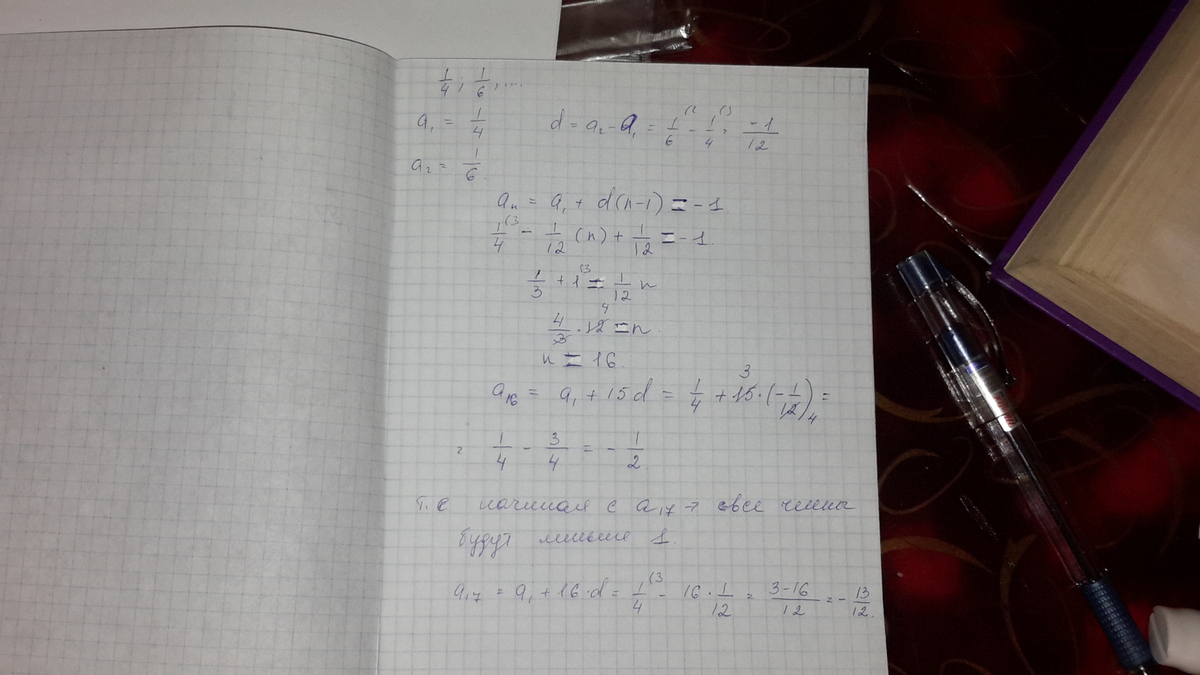 1/4; 1/6, ...
a₁ = 1/4 d = a₂ - a₁ = 1/6 (2 - 1/4 (3 = -1/12
a₂ = 1/6.
aₙ = a₁ + d(n-1) = -1
1/4 (3 - 1/12 (n) + 1/12 = -1.
1/3 + 1 (3 = 1/12 n
4/3 · 12 4 = n.
n = 16.
a₁₆ = a₁ + 15d = 1/4 + 15 3 · (-1/12) 4 =
= 1/4 - 3/4 = - 1/2
т.е начиная с a₁₇ → все члены
будут меньше 1.
a₁₇ = a₁ + 16·d = 1/4 (3 - 16 · 1/12 = 3-16/12 = - 13/12.